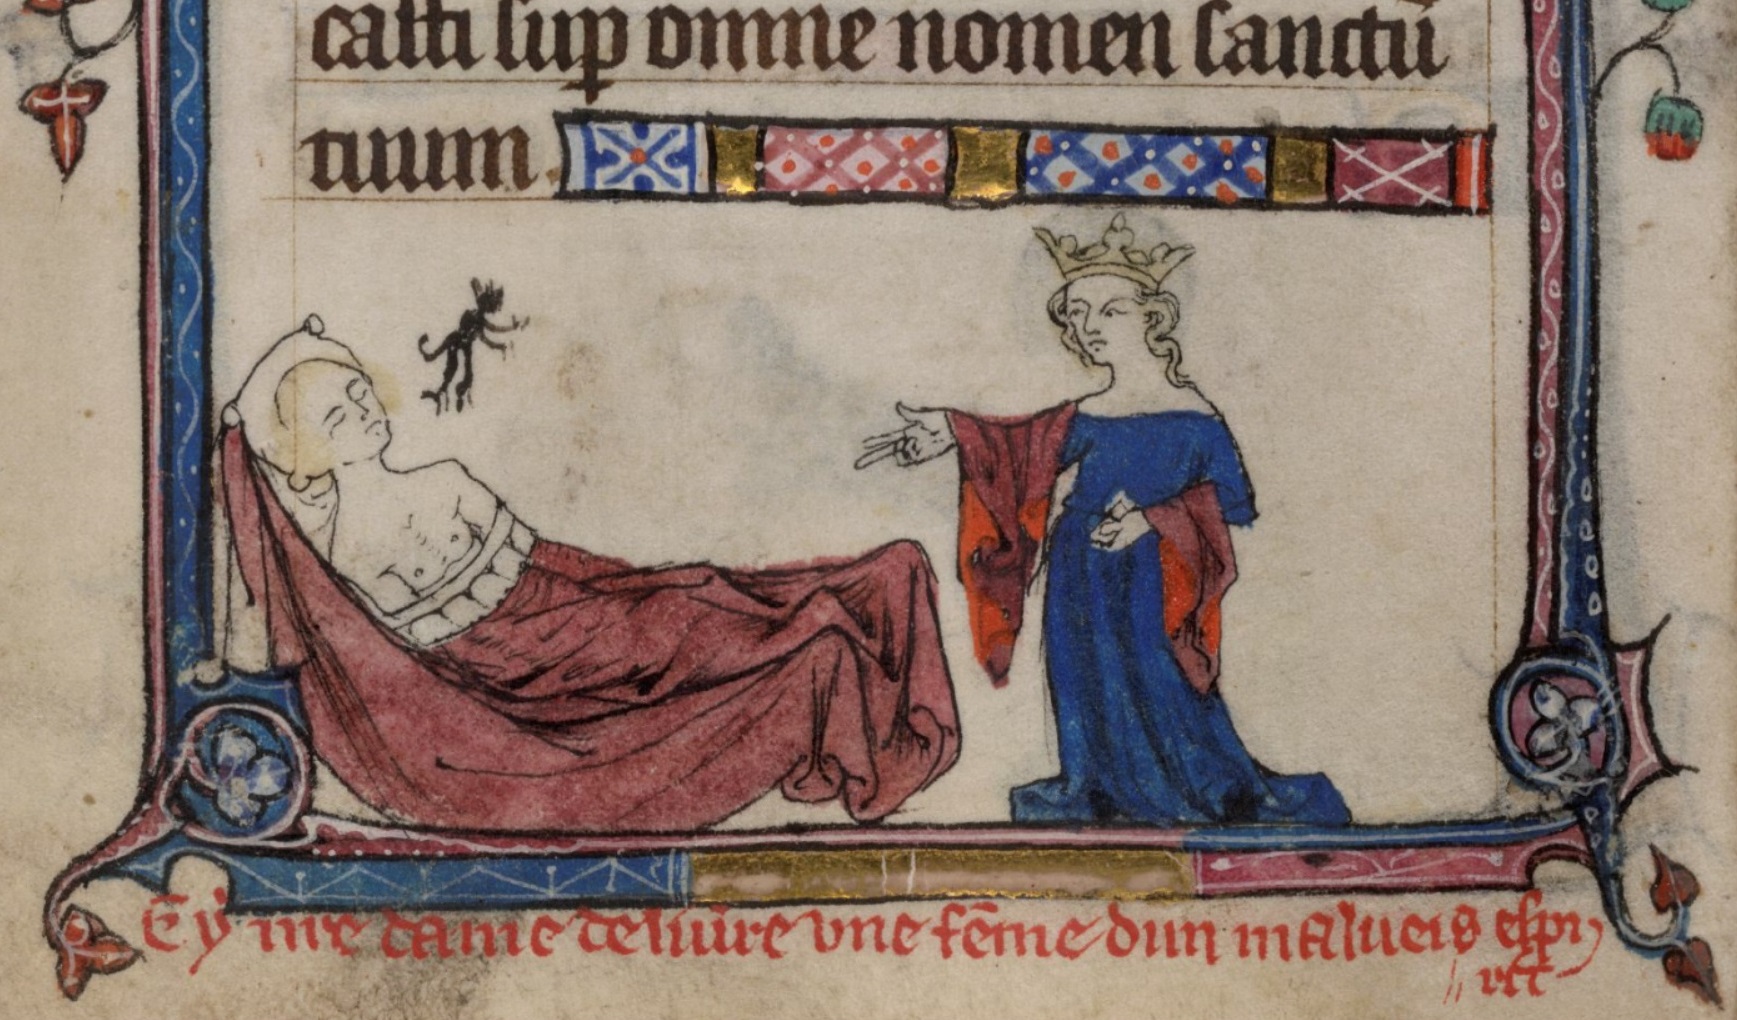 casti sup omne nomen sanctū
tuum.
Cy nr̄e dame deliūre vne fēme dun malueis espi
// rit